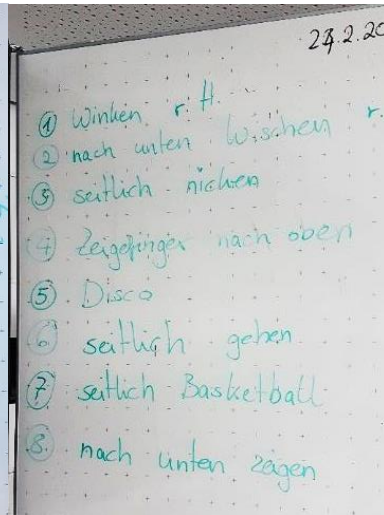 27.2.20
① Winken r. H.
② nach unten wischen r.
③ seitlich nicken
④ Zeigefinger nach oben
⑤ Disco
⑥ seitlich gehen
⑦ seitlich Basketball
⑧ nach unten zeigen